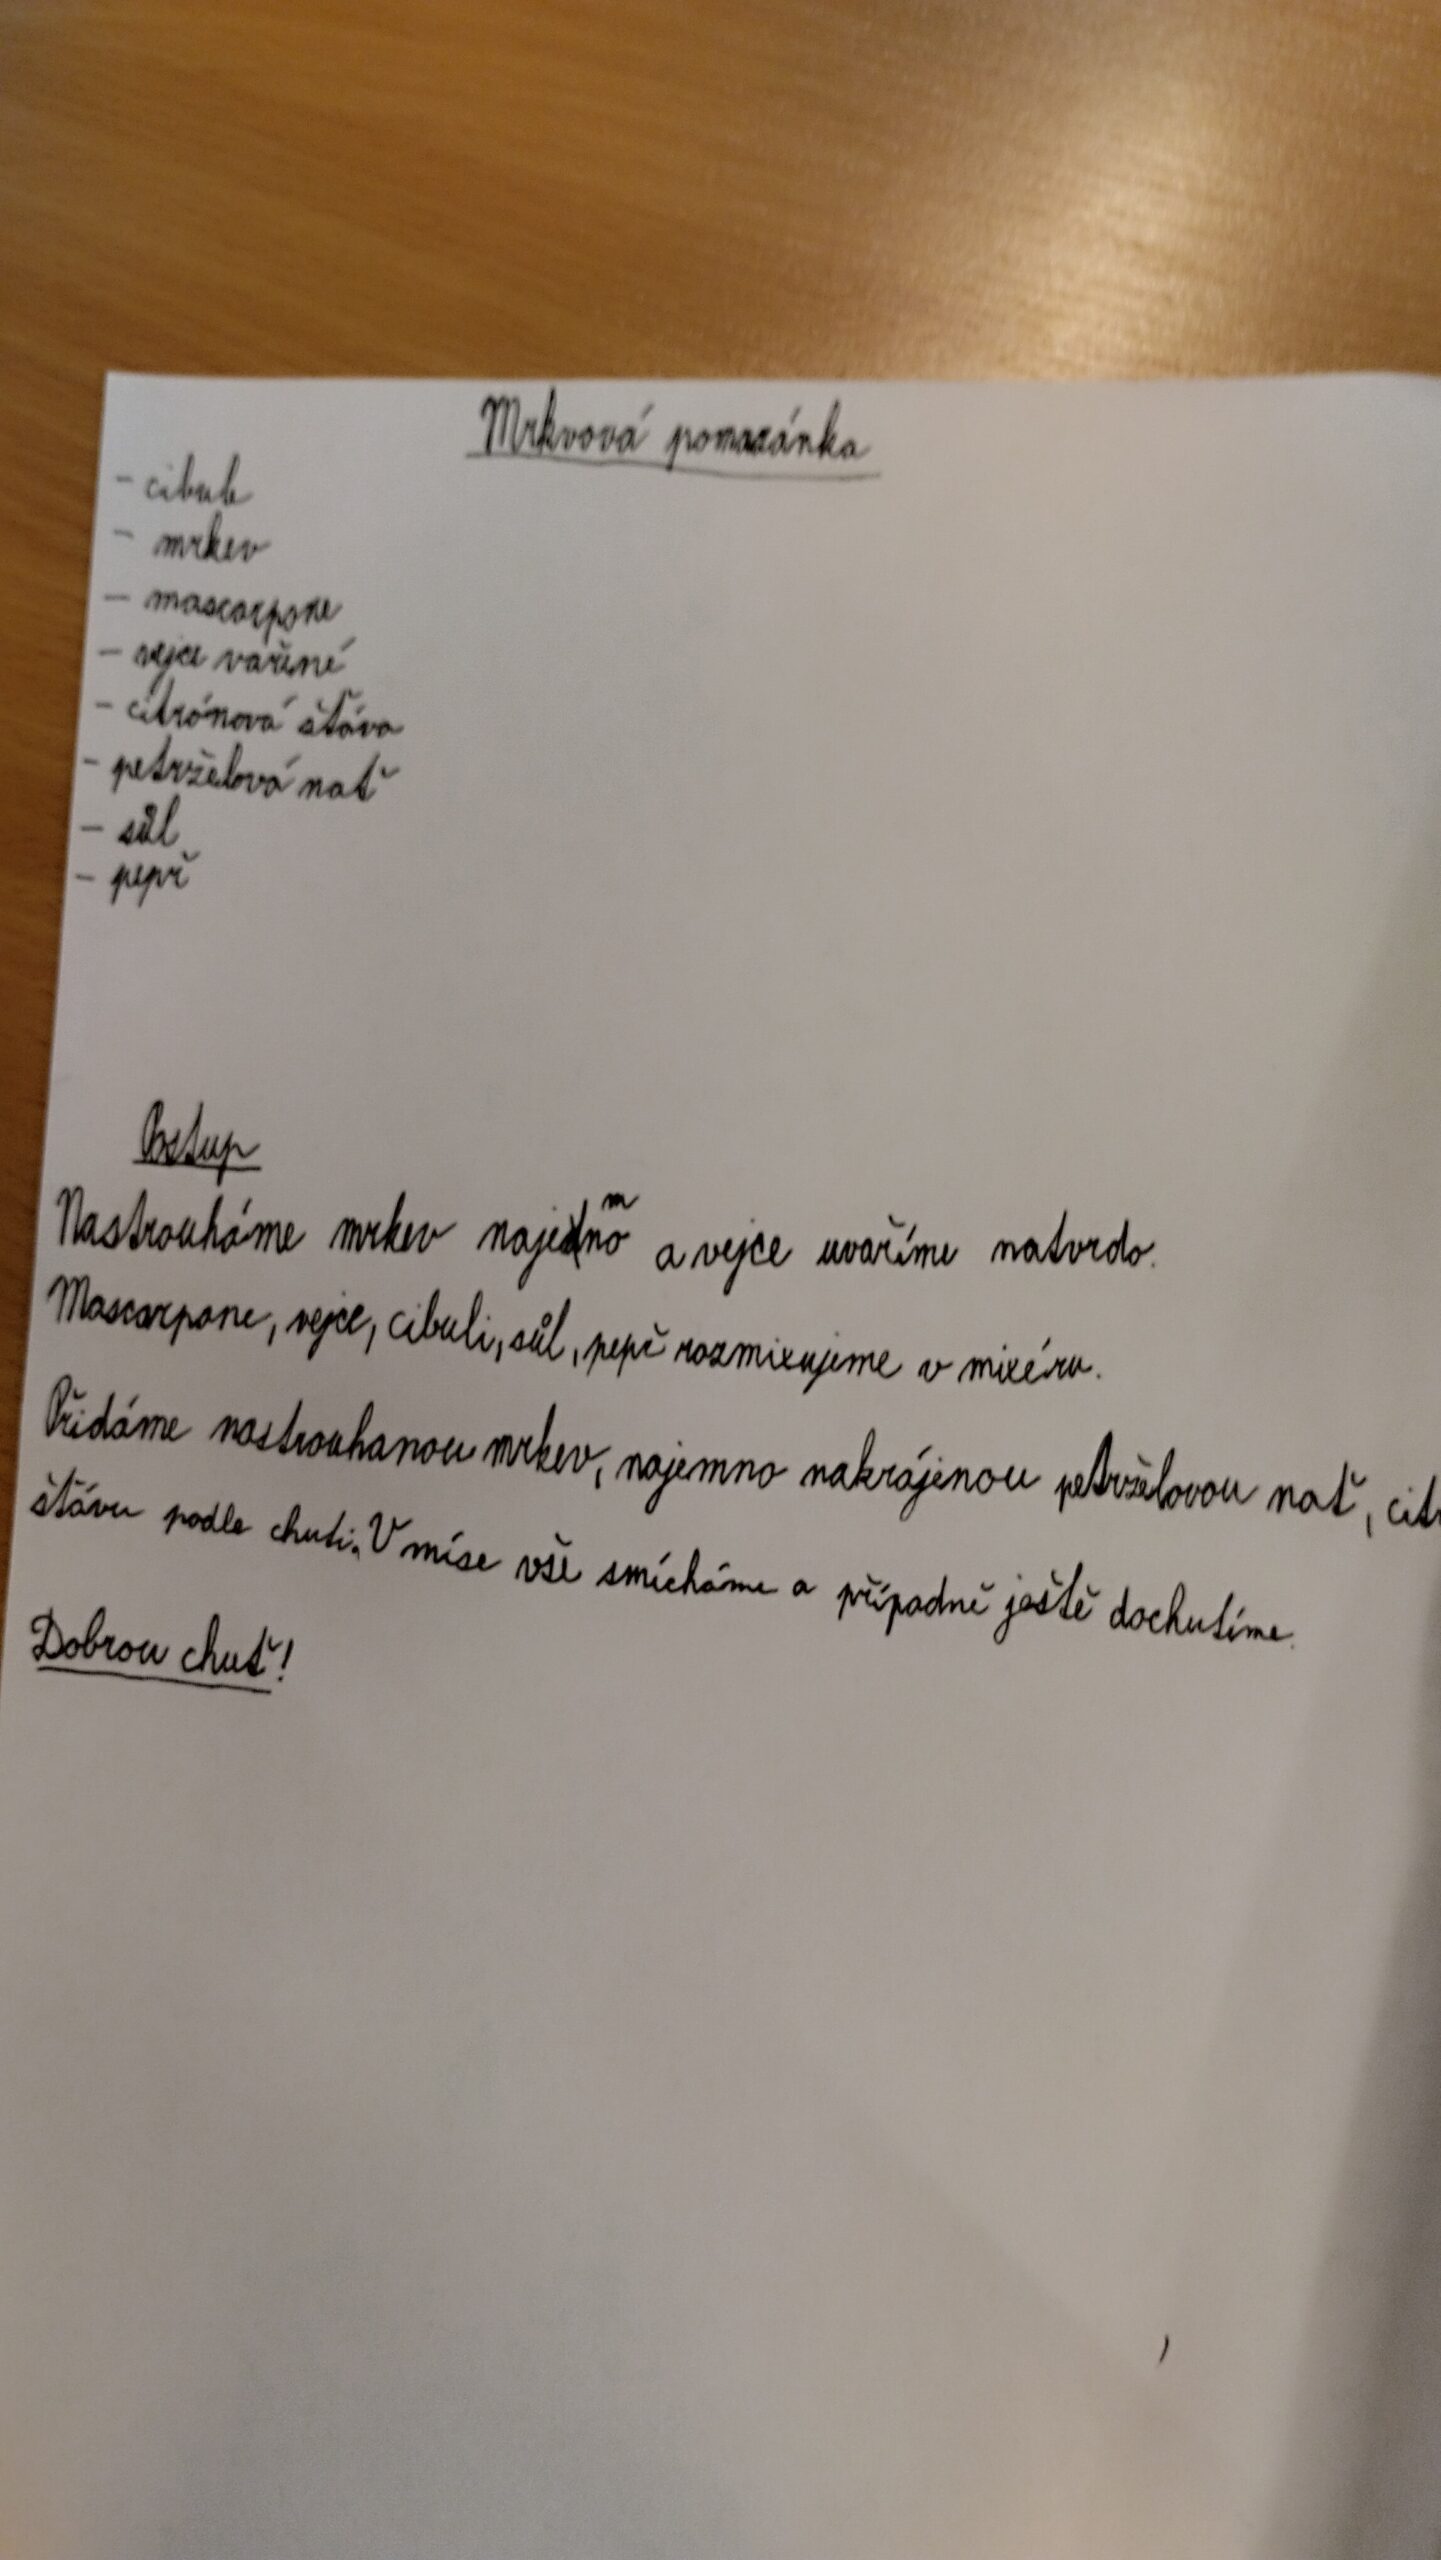 Mrkvová pomazánka
- cibule
- mrkev
- mascarpone
- vejce vařené
- citrónová šťáva
- petrželová nať
- sůl
- pepř
Postup
Nastrouháme mrkev najemno a vejce uvaříme natvrdo.
Mascarpone, vejce, cibuli, sůl, pepř rozmixujeme v mixéru.
Přidáme nastrouhanou mrkev, najemno nakrájenou petrželovou nať,
šťávu podle chuti. V míse vše smícháme a případně ještě dochutíme.
Dobrou chuť!